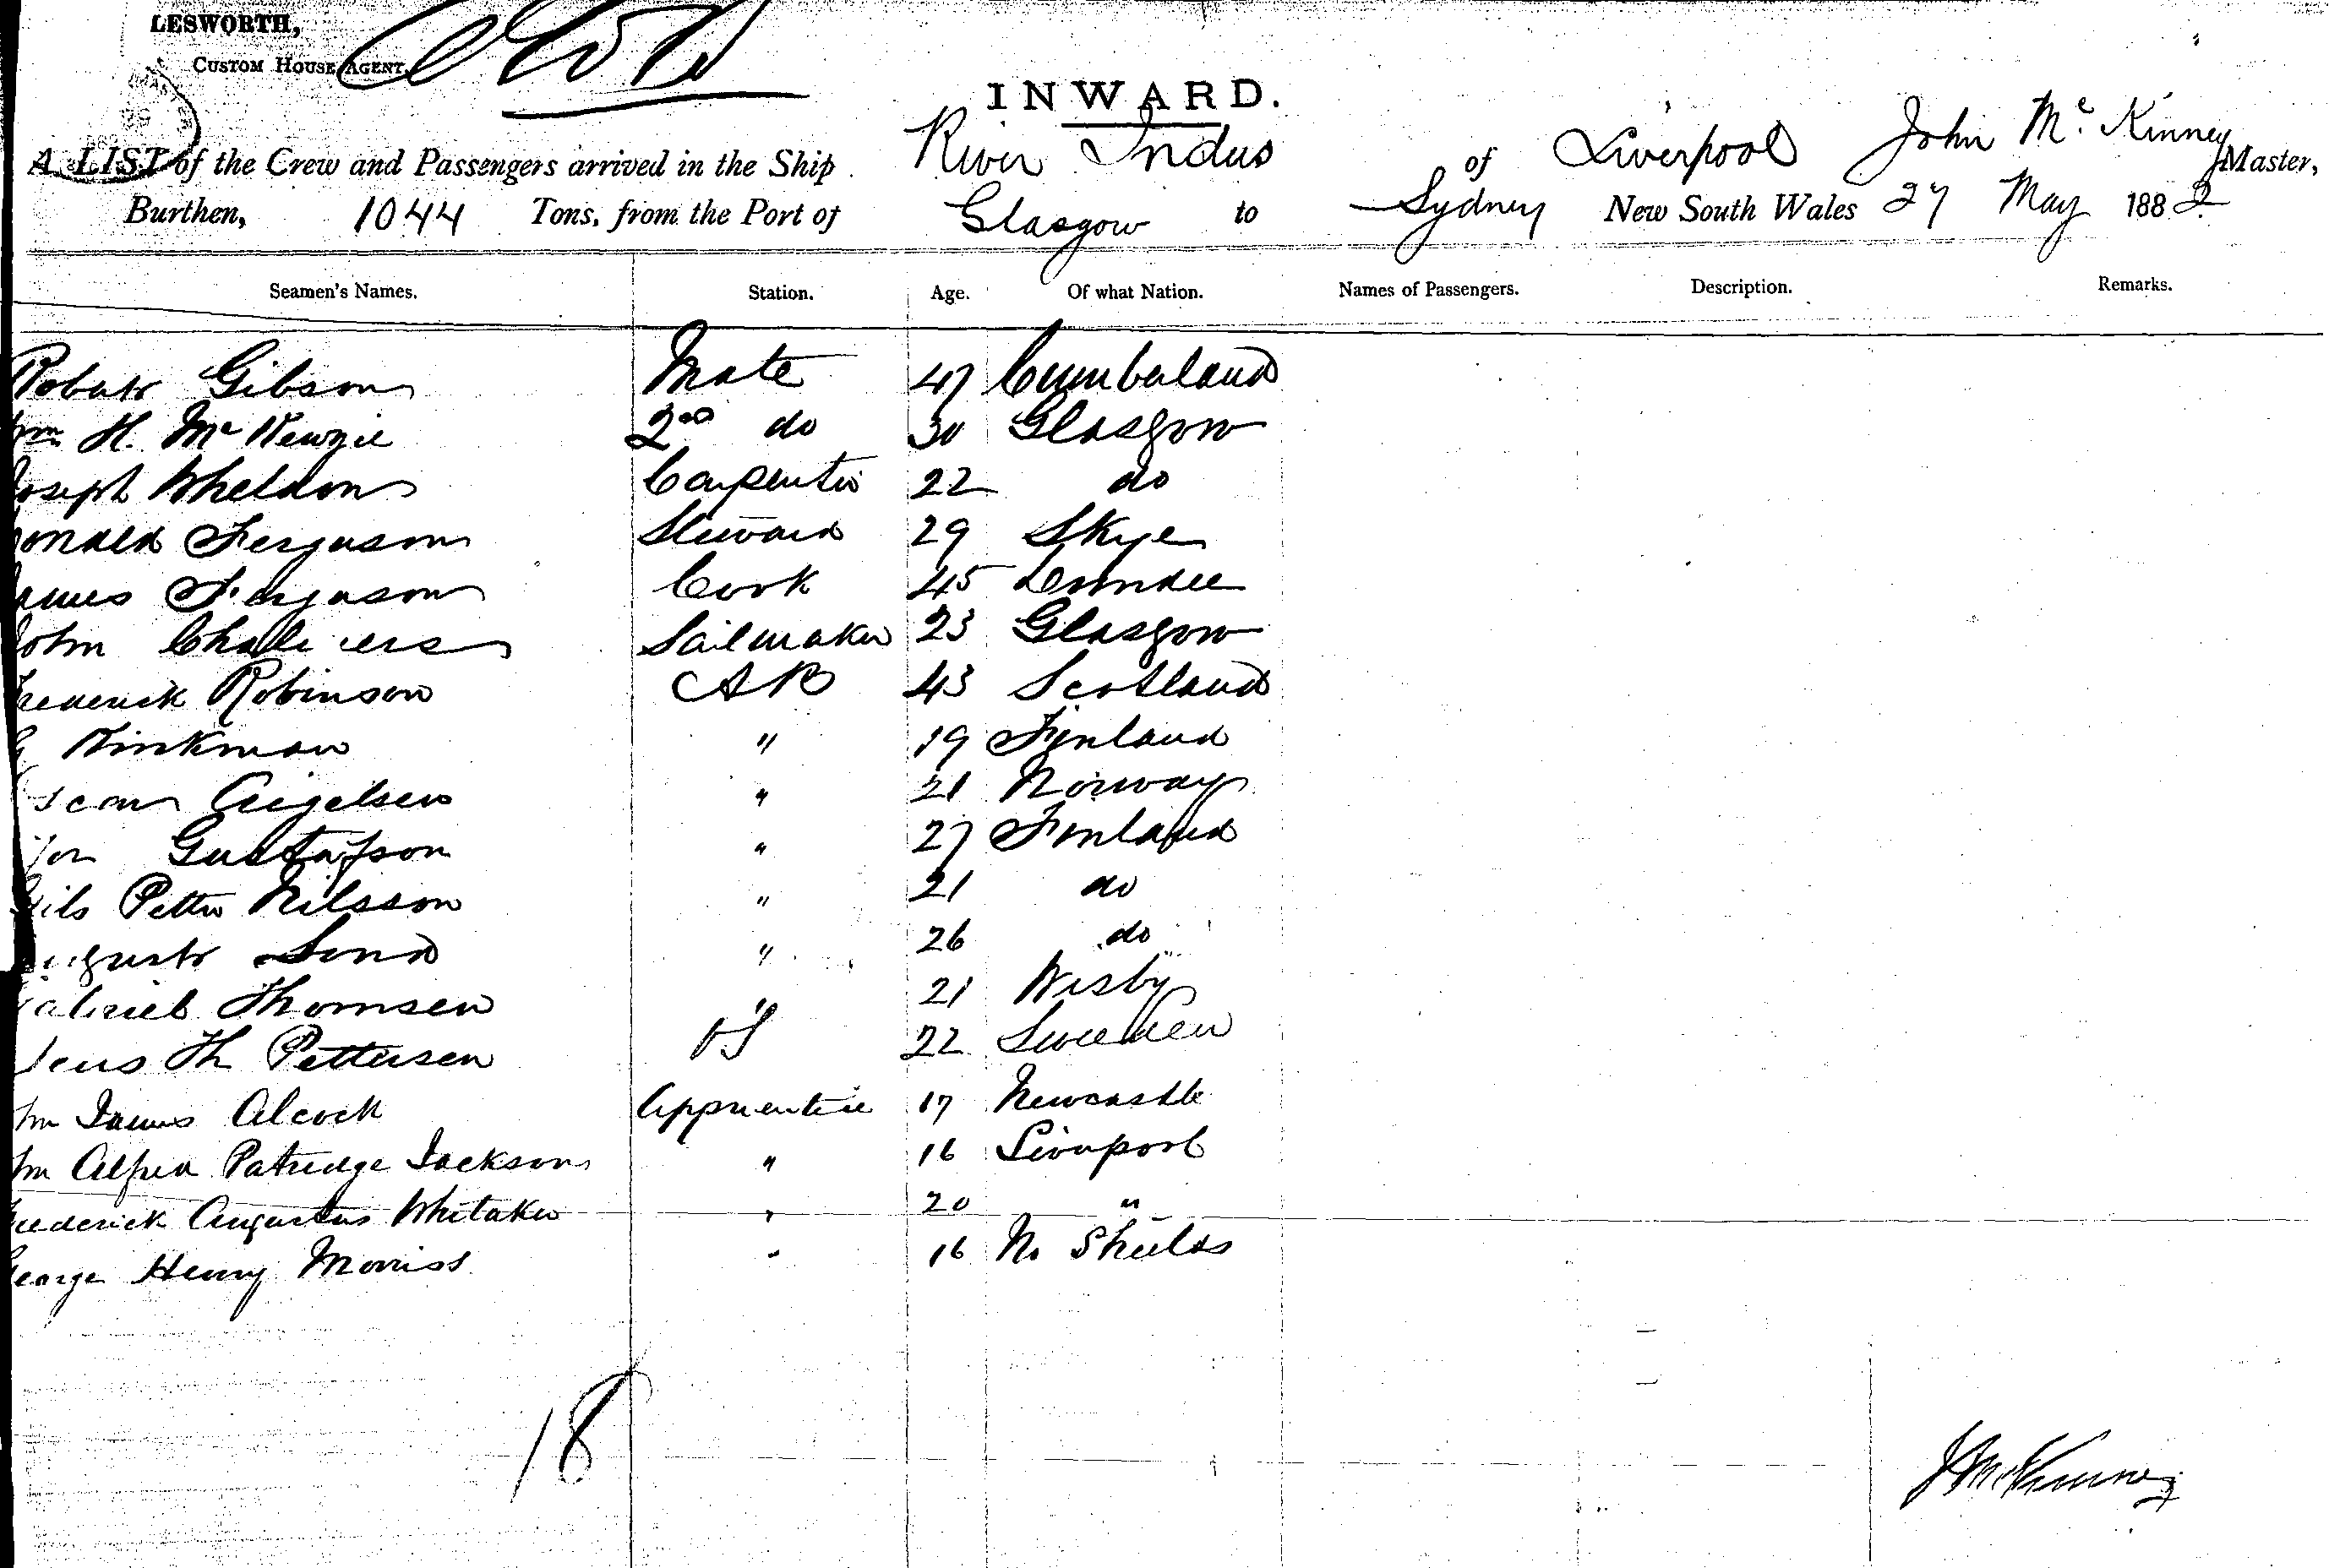 LESWORTH,
CUSTOM HOUSE AGENT,
INWARD.
A LIST of the Crew and Passengers arrived in the Ship River Indus of Liverpool John Mc Kinney Master,
Burthen, 1044 Tons, from the Port of Glasgow to Sydney New South Wales 27 May 1882
Seamen's Names. Station. Age. Of what Nation. Names of Passengers. Description. Remarks.
Robert Gibson Mate 47 Cumberland
Wm H. Mc Kenzie 2nd do 30 Glasgow
Joseph Wheldon Carpenter 22 do
Donald Ferguson Steward 29 Skye
James Ferguson Cook 45 Dundee
John Chalmers Sailmaker 23 Glasgow
Frederick Robinson AB 43 Scotland
Kinkman " 19 Finland
" 21 Norway
Gustafson " 27 Finland
Nils Petter Nilsson " 21 do
August Lind " 26 do
Gabriel Thomsen " 21 Wisby
Jens Th Pettersen OS 22 Sweden
Wm James Alcock Apprentice 17 Newcastle
Wm Alfred Patridge Jackson " 16 Liverpool
Frederick Augustus Whitaker " 20 "
George Henry Morriss " 16 No Shields
18
J McKinney